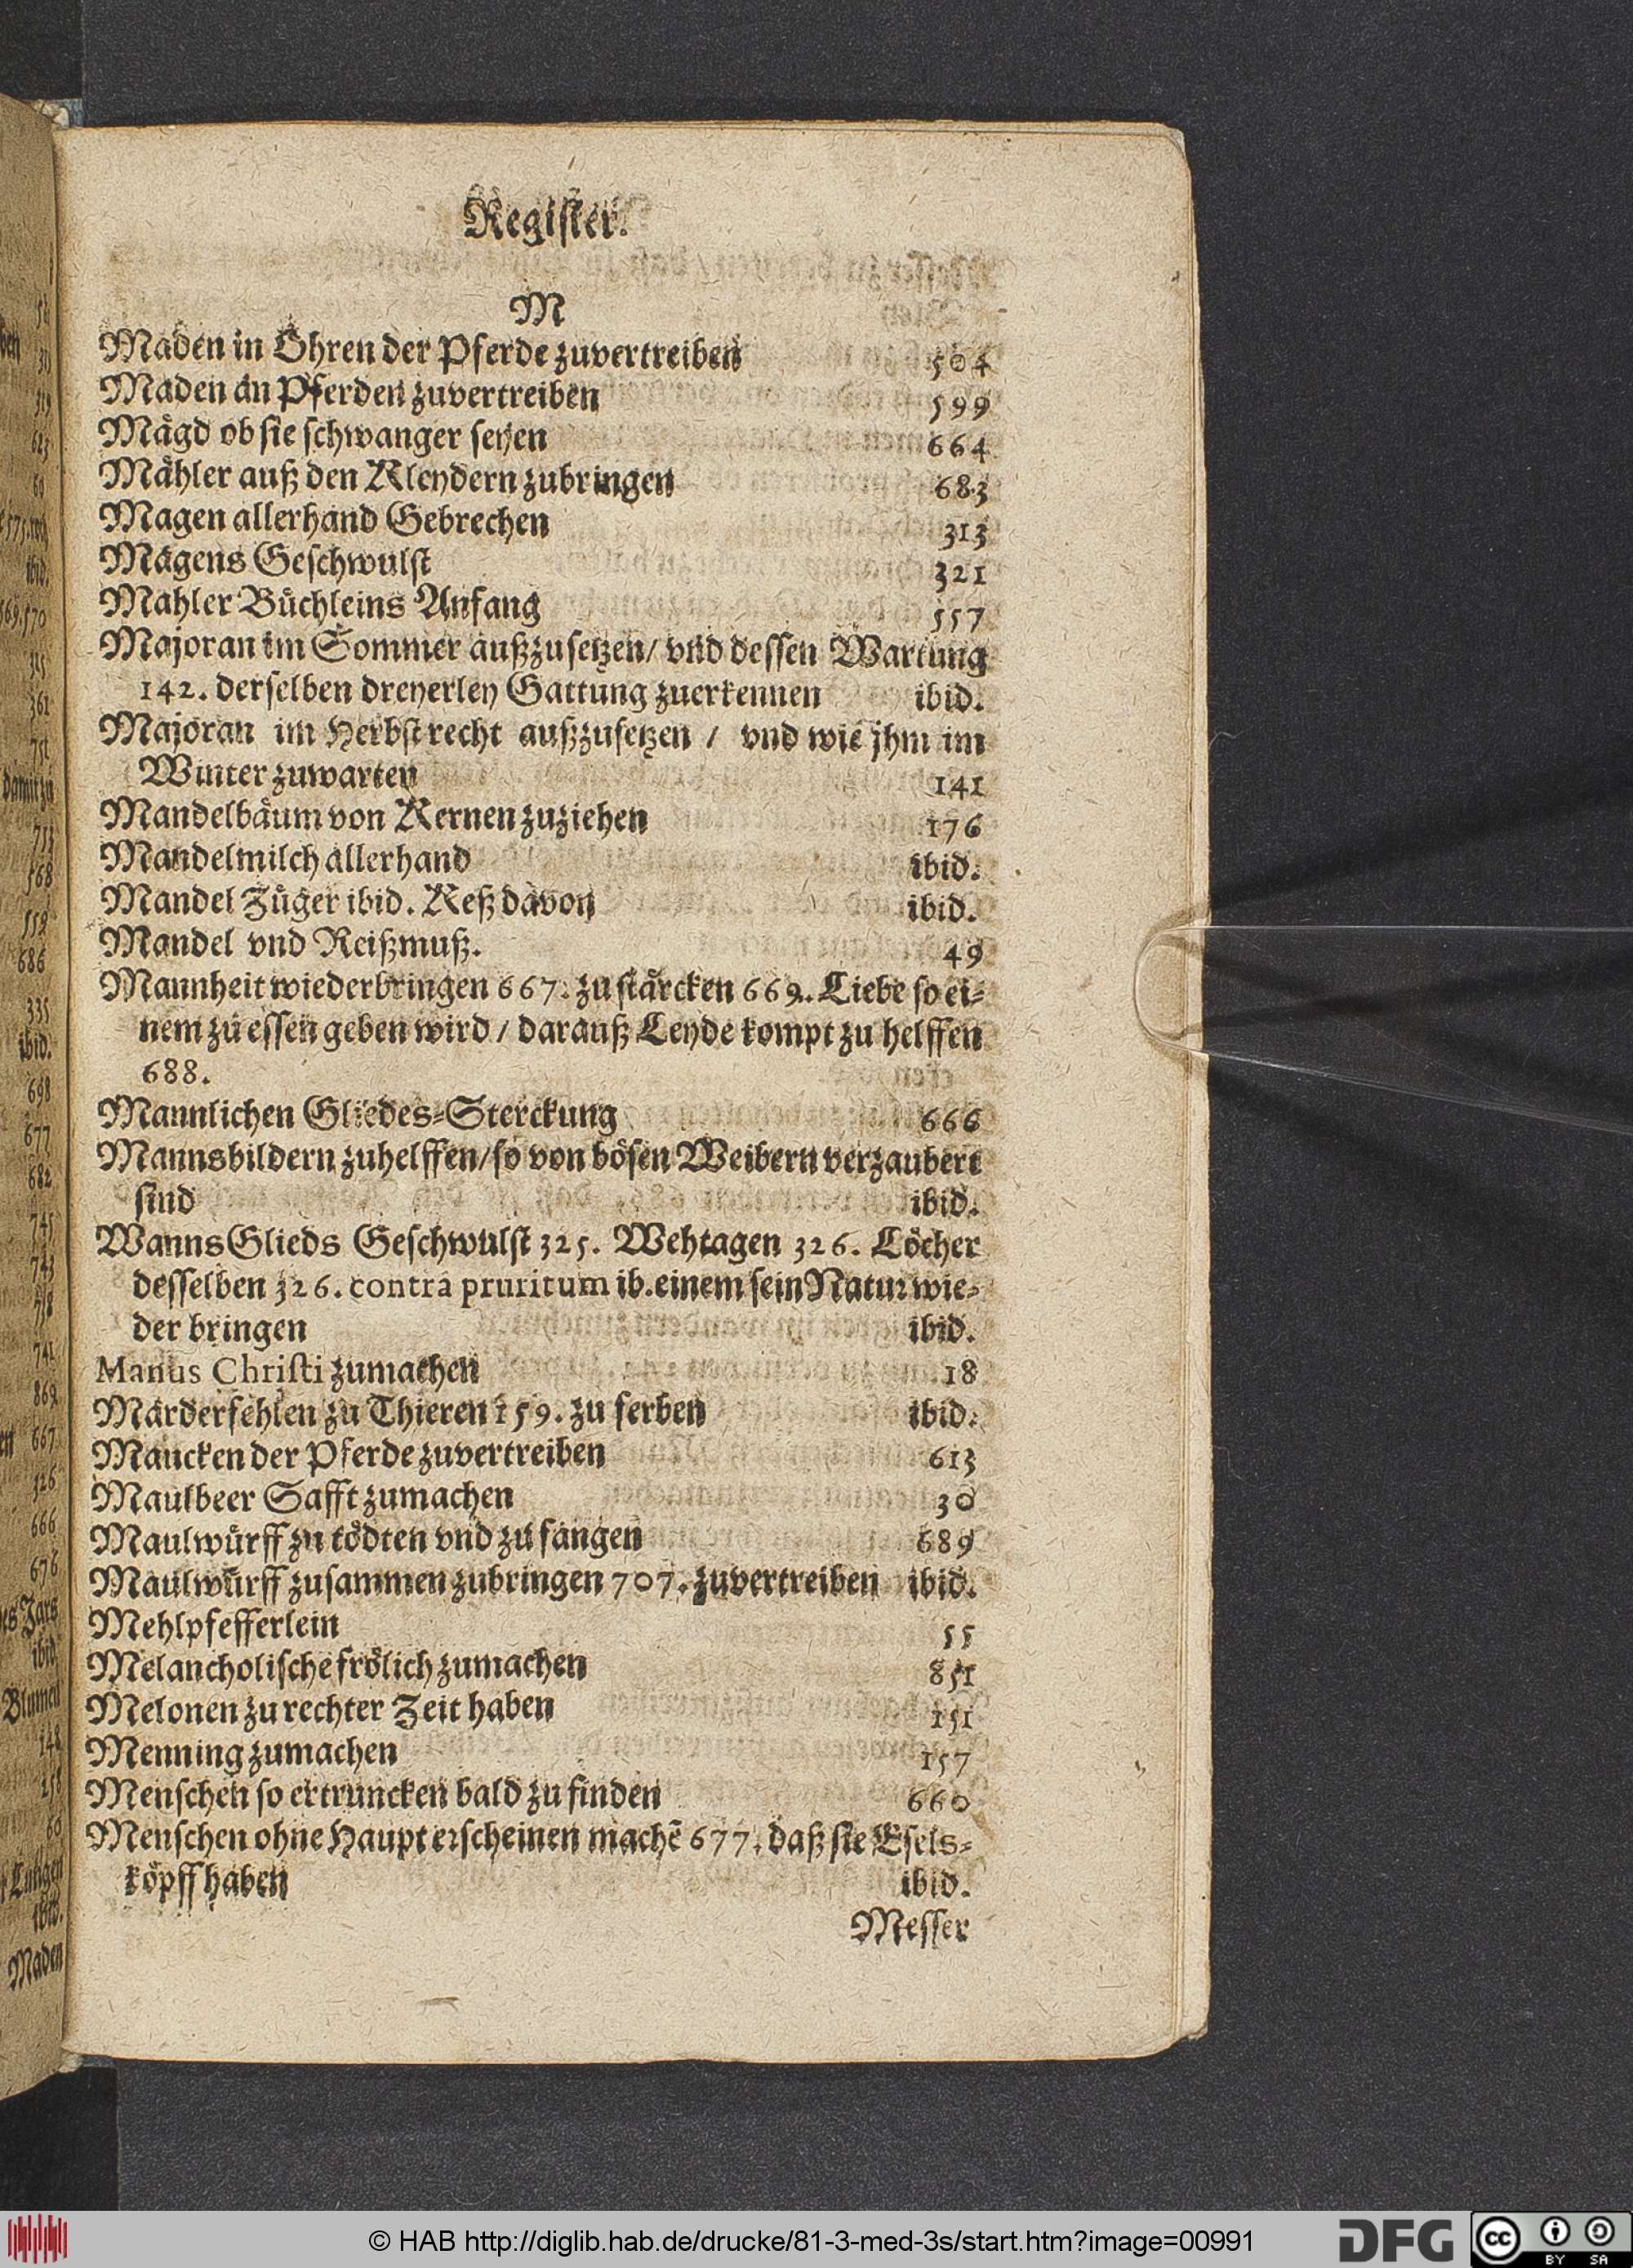 Regiſter.
M
Maden in Ohren der Pferde zuvertreiben 504
Maden an Pferden zuvertreiben 599
Maͤgd ob ſie ſchwanger ſeyen 664
Maͤhler auß den Kleydern zubringen 683
Magen allerhand Gebrechen 313
Magens Geſchwulſt 321
Mahler Buͤchleins Anfang 557
Majoran im Sommer außzuſetzen/ vnd deſſen Wartung
142. derſelben dreyerley Gattung zuerkennen ibid.
Majoran im Herbſt recht außzuſetzen / vnd wie jhm im
Winter zuwarten 141
Mandelbaum von Kernen zuziehen 176
Mandelmilch allerhand ibid.
Mandel Zuͤger ibid. Keß davon ibid.
Mandel vnd Reißmuß. 49
Mannheit wiederbringen 667. zu ſtaͤrcken 669. Liebe ſo ei-
nem zu eſſen geben wird / darauß Leyde kompt zu helffen
688.
Mannlichen Gliedes-Sterckung 666
Mannsbildern zuhelffen/ſo von boͤſen Weibern verzaubert
ſind ibid.
Wanns Glieds Geſchwulſt 325. Wehtagen 326. Loͤcher
desſelben 326. contra pruritum ib. einem ſein Natur wie-
der bringen ibid.
Manus Chriſti zumachen 18
Marderfehlen zu Thieren 159. zu ferben ibid.
Maucken der Pferde zuvertreiben 613
Maulbeer Safft zumachen 30
Maulwuͤrff zu toͤdten vnd zu fangen 689
Maulwuͤrff zuſammen zubringen 707. zuvertreiben ibid.
Mehlpfefferlein 55
Melancholiſche froͤlich zumachen 851
Melonen zu rechter Zeit haben 151
Menning zumachen 157
Menſchen ſo ertruncken bald zu finden 660
Menſchen ohne Haupt erſcheinen machẽ 677. daß ſie Eſels-
koͤpff haben ibid.
Meſſer
© HAB http://diglib.hab.de/drucke/81-3-med-3s/start.htm?image=00991
DFG
cc BY SA